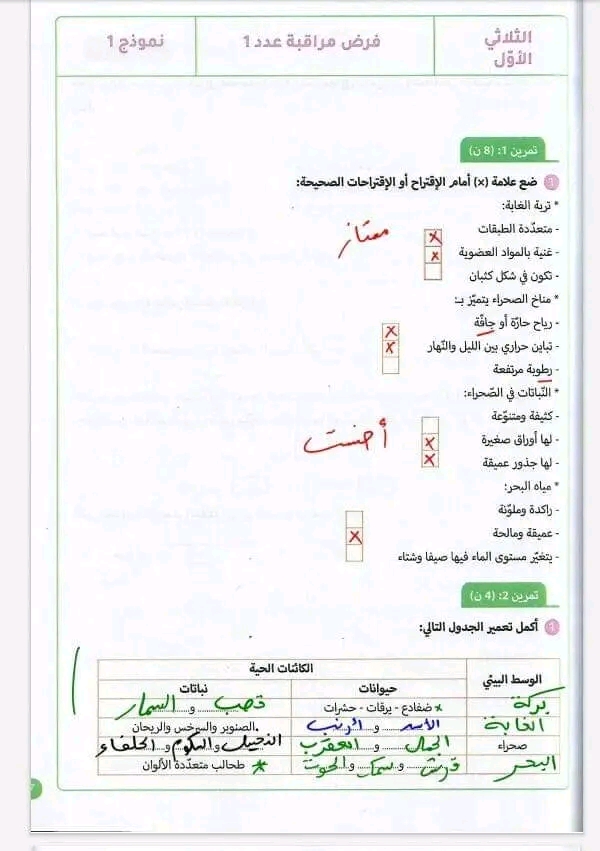 الثلاثي الأوّل
فرض مراقبة عدد 1
نموذج 1
تمرين 1: (8 ن)
1 ضع علامة (×) أمام الإقتراح أو الإقتراحات الصحيحة:
* تربة الغابة:
- متعدّدة الطبقات ×
- غنية بالمواد العضوية ×
- تكون في شكل كثبان
ممتاز
* مناخ الصحراء يتميّز بـ:
- رياح حارّة أو جافّة ×
- تباين حراري بين الليل والنّهار ×
- رطوبة مرتفعة
* النّباتات في الصّحراء:
- كثيفة ومتنوّعة
- لها أوراق صغيرة ×
- لها جذور عميقة ×
أحسنت
* مياه البحر:
- راكدة وملوّنة
- عميقة ومالحة ×
- يتغيّر مستوى الماء فيها صيفا وشتاء
تمرين 2: (4 ن)
1 أكمل تعمير الجدول التالي:
الوسط البيئي الكائنات الحية
حيوانات نباتات
بركة × ضفادع - يرقات - حشرات قصب و السمار
الغابة الأسد و أرنب الصنوبر والسرخس والريحان
صحراء الجمال و العقرب النخيل و السكوم و الحلفاء
البحر قرش و سمك و الحوت طحالب متعدّدة الألوان
7